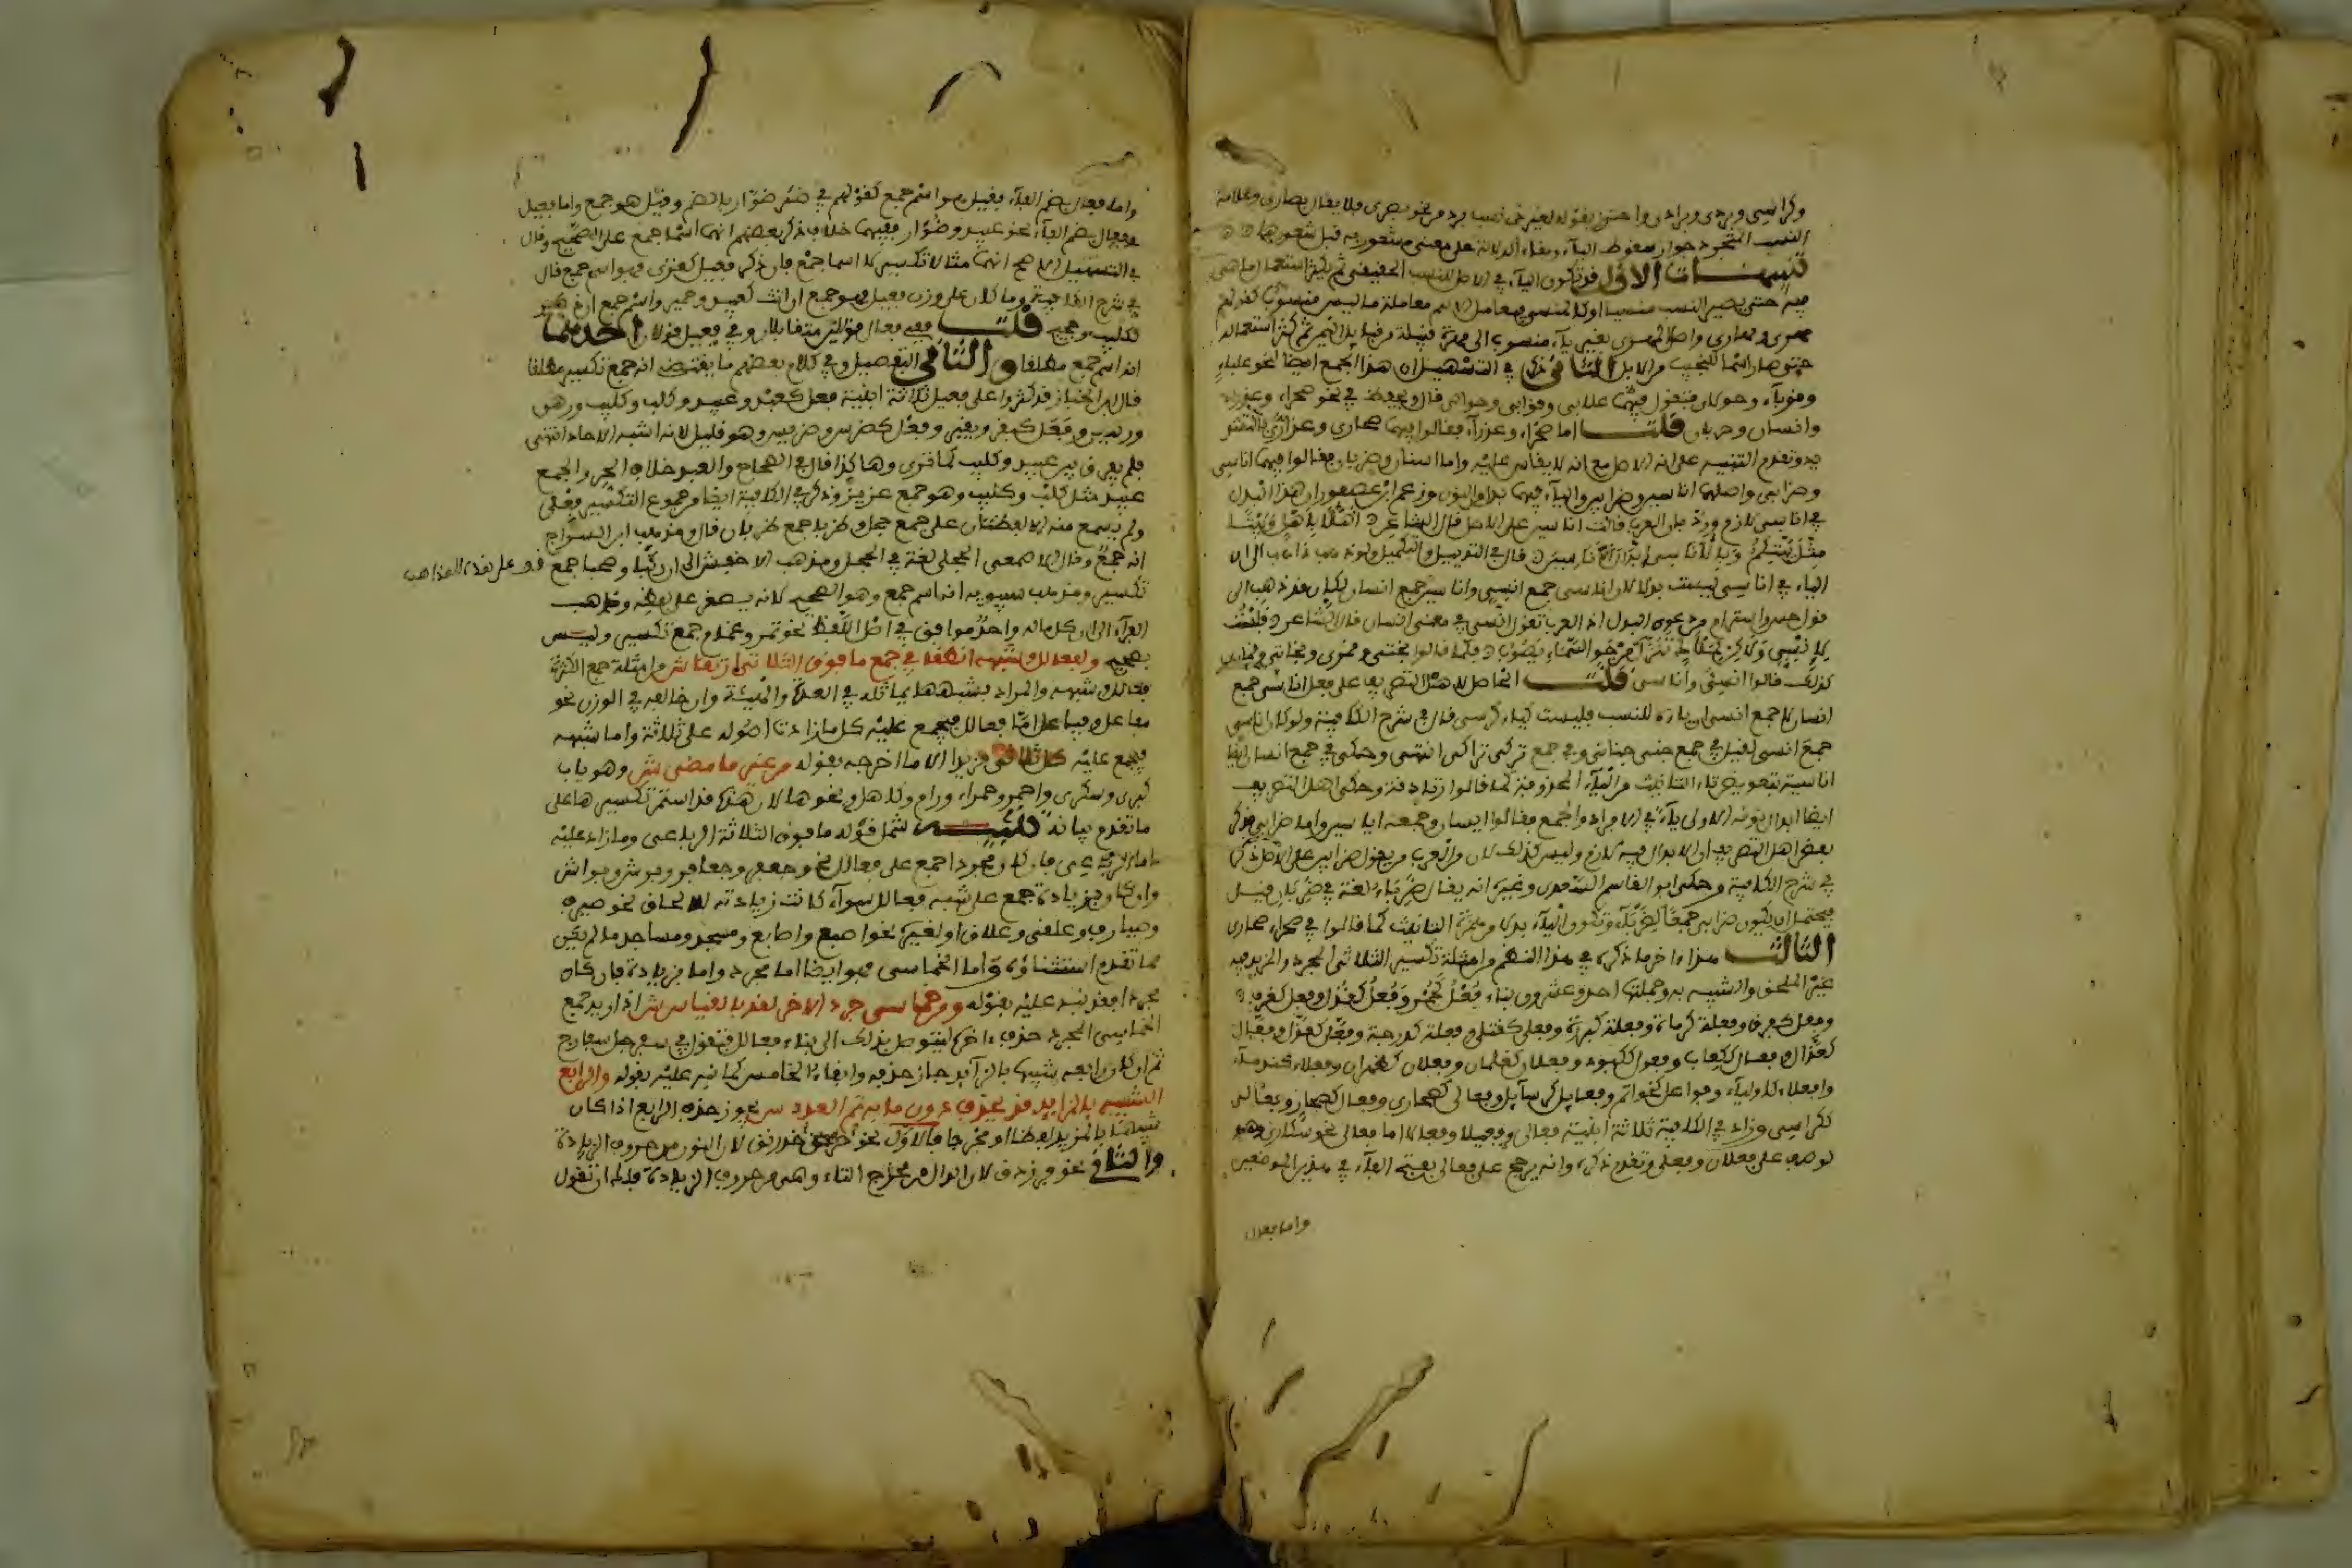 وكراسي وبردي وبرادي واحترز بقوله لغير ذي نسب جدد من نحو بصري فلا يقال بصاري وعلامة
النسب المتجدد جواز سقوط الياء وبقاء الدلالة على معنى مشعور به قبل سقوطها
تنبيهات الاول قد تكون الياء في الاصل للنسب الحقيقي ثم يكثر استعمال ما هي
فيه حتى يصير النسب منسيا او كالمنسي فيعامل الاسم معاملة ما ليس منسوبا كقولهم
مهري ومهاري واصل المهري بعير منسوب الى مهرة قبيلة من قبايل اليمن ثم كثر استعماله
حتى صار اسما للنجيب من الابل الثاني ذكر في التسهيل ان هذا الجمع ايضا لنحو علباء
وقوباء وحولايا فتقول فيها علابي وقوابي وحوالي قال ويحفظ في نحو صحراء وعذراء
وانسان وظربان قلت اما صحراء وعذراء فقالوا فيهما صحاري وعذاري بالتشديد
وقد تقدم التنبيه على انه الاصل مع انه لا يقاس عليه واما انسان وظربان فقالوا فيهما اناسي
وظرابي واصلهما اناسين وظرابين والياء فيهما بدل من النون وزعم ابن عصفور ان هذا البدل
في اناسي لازم ورد بان العرب قالت اناسين على الاصل قال الشاعر اهلا باهل وبيتا
مثل بيتكم وبالاناسين ابدال الاناسين قال في التذييل والتكميل ولو ذهب ذاهب الى ان
الياء في اناسي ليست بدلا لان اناسي جمع انسي واناسين جمع انسان لكان قد ذهب الى
قول حسن واستراح من دعوى البدل اذ العرب تقول انسي في معنى انسان قال الشاعر فلست
لانسي ولكن لملأك تنزل من جو السماء يصوب فكما قالوا بختي وبخاتي وقمري وقماري
كذلك قالوا انسي واناسي قلت الحامل لاهل التصريف على جعل اناسي جمع
انسان لا جمع انسي ان ياءه للنسب فليست كياء كرسي قال في شرح الكافية ولو كان اناسي
جمع انسي لقيل في جمع جني جناني وفي جمع تركي تراكي انتهى وحكي في جمع انسان ايضا
اناسية بتعويض تاء التانيث من الياء المحذوفة كما قالوا زنادقة وحكى اهل التصريف
ايضا ابدال نونه الاولى ياء في الافراد والجمع فقالوا ايسان وجمعه اياسين واما ظرابي فذكر
بعض اهل التصريف ان الابدال فيه لازم وليس كذلك لان من العرب من يقول ظرابين على الاصل ذكره
في شرح الكافية وحكى ابو القاسم السعدي وغيره انه يقال ظرباء لغة في ظربان فقيل
يحتمل ان يكون ظرابي جمعا لظرباء وتكون الياء بدلا من همزة التانيث كما قالوا في صحراء صحاري
الثالث هذا ءاخر ما ذكره في هذا النظم من امثلة تكسير الثلاثي المجرد والمزيد فيه
غير الملحق والشبيه به وجملتها احد وعشرون بناء فعل كحمر وفعل كغزل وفعل كغرف
وفعل كفرق وفعلة كرماة وفعلة كبررة وفعلى كقتلى وفعلة كدرجة وفعل كغزل وفعال
كغزال وفعال ككعاب وفعول ككبود وفعلان كغلمان وفعلان كظهران وفعلاء ككرماء
وافعلاء كاولياء وفواعل كخواتم وفعايل كرسايل وفعالي كصحاري وفعالى كصحارى وفعالي
ككراسي وزاد في الكافية ثلاثة ابنية فعالى وفعيلا وفعالا اما فعالى نحو سكارى وهو
لوصف على فعلان وفعلى وتقدم ذكره وانه يرجح على فعالى بفتح الفاء في هذين الوصفين
واما فعال
واما فعال بضم الفاء فقيل هو اسم جمع كقولهم في ظئر ظؤار بالضم وقيل هو جمع واما فعيل
وفعال بضم الفاء نحو عبيد وظؤار ففيهما خلاف ذكر بعضهم انهما اسما جمع على الصحيح وقال
في التسهيل الاصح انهما مثالا تكسير لا اسما جمع فان ذكر فعيل كغزي فهو اسم جمع قال
في شرح الكافية وما كان على وزن فعيل فهو جمع ان انث كعبيد وحمير واسم جمع ان ذكر
ككليب وحجيج قلت ففي فعال قولان متقابلان وفي فعيل قولان احدهما
انه اسم جمع مطلقا والثاني التفصيل وفي كلام بعضهم ما يقتضي انه جمع تكسير مطلقا
قال ابن الخباز قد كسروا على فعيل ثلاثة ابنية فعل كعبد وعبيد وكلب وكليب ورهن
ورهين وفعل كبقر وبقير وفعل كضرس وضريس وهو قليل لانه اشبه الاحاد انتهى
فلم يفرق بين عبيد وكليب كما ترى وهاكذا قال في الصحاح والعبد خلاف الحر والجمع
عبيد مثل كلب وكليب وهو جمع عزيز وذكر في الكافية ايضا من جموع التكسير فعلى
ولم يسمع منه الا لفظتان حجلى جمع حجل وظربى جمع ظربان قال ومذهب ابن السراج
انه جمع وقال الاصمعي الحجلى لغة في الحجل ومذهب الاخفش الى ان ركبا وصحبا جمع
تكسير ومذهب سيبويه انه اسم جمع وهو الصحيح لانه يصغر على لفظه وذهب
الفراء الى ان كل ماله واحد موافق في اصل اللفظ نحو تمر وغمام جمع تكسير وليس
بصحيح وبفعالل وشبهه انطقا في جمع ما فوق الثلاثة ارتقا ش من امثلة جمع الكثرة
فعالل وشبهه والمراد بشبهه ما يماثله في العدة والهيئة وان خالفه في الوزن نحو
مفاعل وفياعل اما فعالل فيجمع عليه كل ما زادت اصوله على ثلاثة واما شبهه
فيجمع عليه كل ثلاثي مزيد الا ما اخرجه بقوله من غير ما مضى ش وهو باب
كبرى وسكرى واحمر وحمراء ورام وكاهل ونحوها لان هذه قد استقر تكسيرها على
ما تقدم بيانه تنبيه شمل قوله ما فوق الثلاثة الرباعي وما زاد عليه
اما الرباعي فان كان مجردا جمع على فعالل نحو جعفر وجعافر وبرثن وبراثن
وان كان بزيادة جمع على شبه فعالل سواء كانت زيادته للالحاق نحو صيرف
وصيارف وعلقى وعلاق او لغيره نحو اصبع واصابع ومسجد ومساجد ما لم يكن
مما تقدم استثناؤه واما الخماسي فهو ايضا اما مجرد واما بزيادة فان كان
مجردا فقد نبه عليه بقوله ومن خماسي جرد الاخر انف بالقياس ش اذا اريد جمع
الخماسي المجرد حذف ءاخره ليتوصل بذلك الى بناء فعالل فتقول في سفرجل سفارج
ثم ان كان رابعه شبيها بالزايد جاز حذفه وابقاء الخامس كما نبه عليه بقوله والرابع
الشبيه بالمزيد قد يحذف دون ما به تم العدد ش يجوز حذف الرابع اذا كان
شبيها بالمزيد لفظا او مخرجا فالاول نحو خدرنق لان النون من حروف الزيادة
والثاني نحو فرزدق لان الدال من مخرج التاء وهي من حروف الزيادة فلك ان تقول